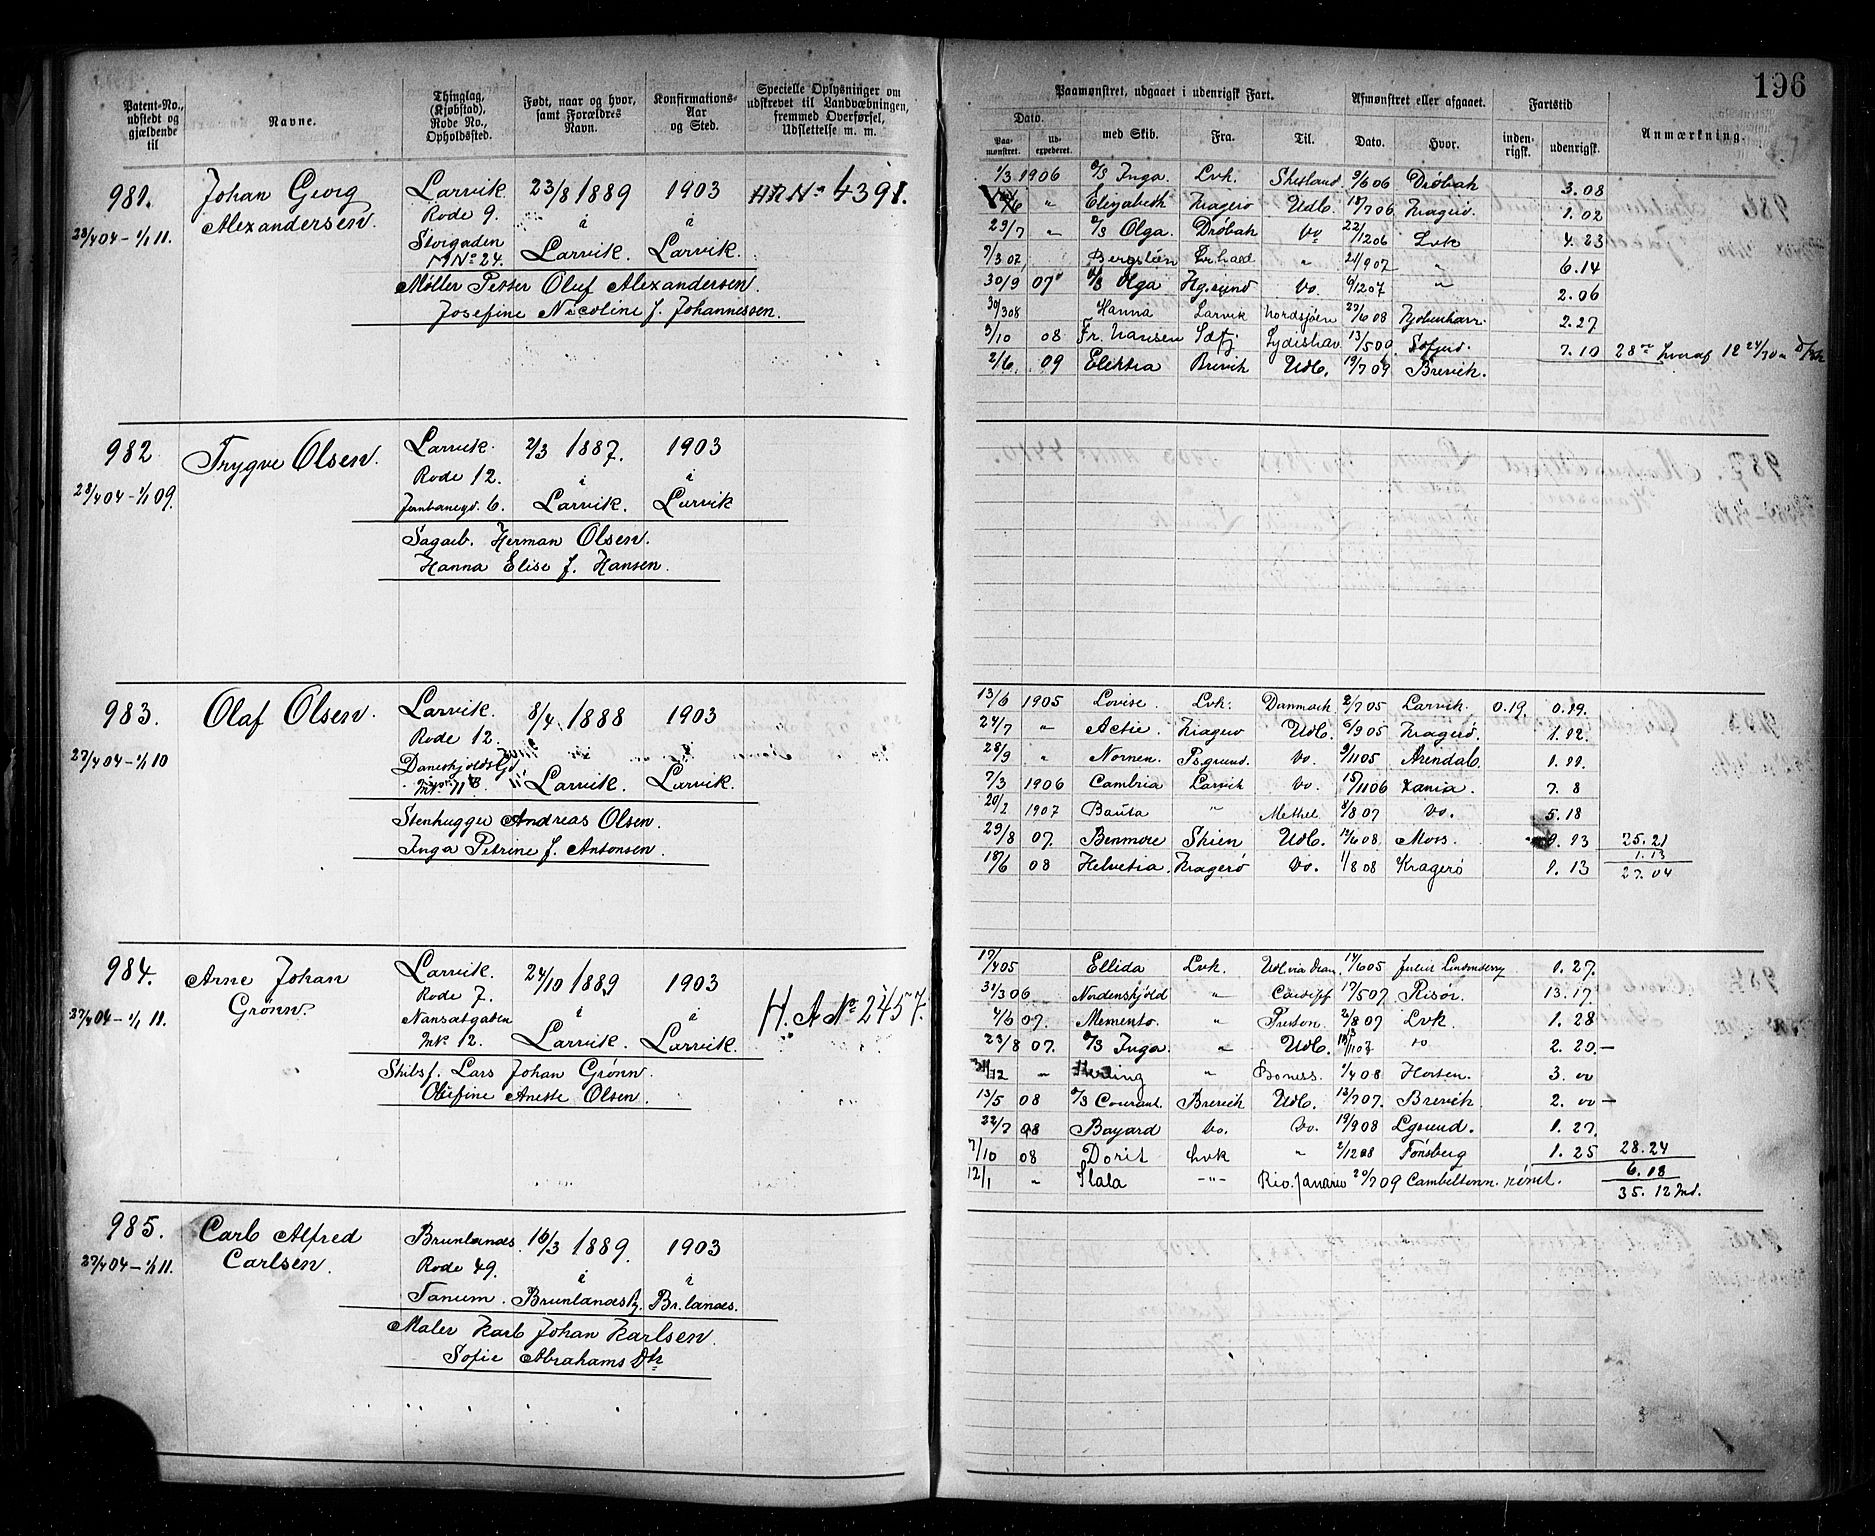 196
Patent-No., udstedt og gjældende til
Navne.
Thinglag, (Kjøbstad), Rode No., Opholdssted.
Født, naar og hvor, samt Forældres Navn.
Konfirmations-Aar og Sted.
Specielle Oplysninger om udskrevet til Landværbningen, fremmed Overførsel, Udslettelse m. m.
Paamønstret, udgaaet i udenrigsk Fart.
Afmønstret eller afgaaet.
Fartstid
Anmærkning.
Dato.
Paa-mønstret.
ud-expederet.
med Skib.
Fra.
Til.
Dato.
Hvor.
inden-rigsk.
udenrigsk.
981. Johan Georg Larvik 23/8 1889 1903 4391.
Alexandersen. Rode 9. i i
23/4 04 - 1/1 11. Storgaden
No 24. Larvik. Larvik.
Møller Petter Oluf Alexandersen.
Josefine Nicoline f. Johannessen.
1/3 1906 Inga Lvk. 9/6 06 Drøbak 3.08
" Elizabeth Kragerø Udl. Kragerø. 1.02
29/7 " Olga. Drøbak Do 22/12 06 Lvk 4.23
" " 6.14
30/9 07 Olga Do. 6/12 07 " 2.06
30/3 08 Hanna Larvik Nordsjøen 27/6 08 Kjøbenhavn 2.27
3/10 08 Fr. Nansen 7.10
2/6. 09 Elektra Brevik Udl. 19/7 09 Brevik.
982 Trygve Olsen. Larvik. 2/3 1887. 1903
Rode 12. i i
23/4 04 - 1/1 09. 6. Larvik. Larvik
Herman Olsen.
Hanna Elise f. Hansen.
983. Olaf Olsen. Larvik. 8/4. 1888 1903
Rode 12.
27/4 04 - 1/1 10
Larvik. Larvik.
Stenhugger Andreas Olsen.
Inga Petrine f. Antonsen.
13/6 1905 Lovise. Lvk. Danmark 2/7 05 Larvik. 0.19. 0.19.
24/7 " Kragerø Udl. 6/9 05 Kragerø.
28/9 " Nornen. Psgrund. Do. 9/11 05 Arendal.
7/3 1906 Cambria Larvik Do. 15/11 06 7.8
20/2 1907 Bauta " Methel 8/8 07 Do. 5.18
29/8 07. Benmore Skien Udl. Moss. 25.21
1.13
18/6 08 Helvetia. Kragerø Do. 1/8 08 Kragerø 1.13 27.04
984. Arne Johan Larvik. 24/10 1889 1903
Grønn. Rode 7. i i H. A No 2457.
27/4 04 - 1/1 11. Nansetgaden
12. Larvik. Larvik.
Lars Johan Grønn.
Anette Olsen.
17/4 05 Ellida Lvk. 14/6 05 1.27.
31/3 06 Nordenskjöld " Cardiff 17/5 07 Risør. 13.17
4/6 07. Memento. " Preston. 2/8 07 Lvk. 1.28
23/8 07. Inga. " Udl. Do 2.20 -
" " Boness. 1/4 08 Horten. 3.00
13/5 08 Courant. Brevik Udl. 13/7 07. Brevik. 2.00 -
22/7 08 Bayard Do. Do. 19/9 08 Lgsund. 1.27.
7/10 08 Dorit Lvk " 2/12 08 Tønsberg 1.25 28.24
6.18
12/1 " " Rio Janario 20/7 09 rømt. 35.12 Md.
985. Carl Alfred Brunlanæs. 16/3 1889. 1903
Carlsen. Rode 49. i i
27/4 04 - 1/1 11. Tanum. Brunlanæs. Br.lanæs.
Maler Karl Johan Karlsen.
Sofie Abrahams Dtr